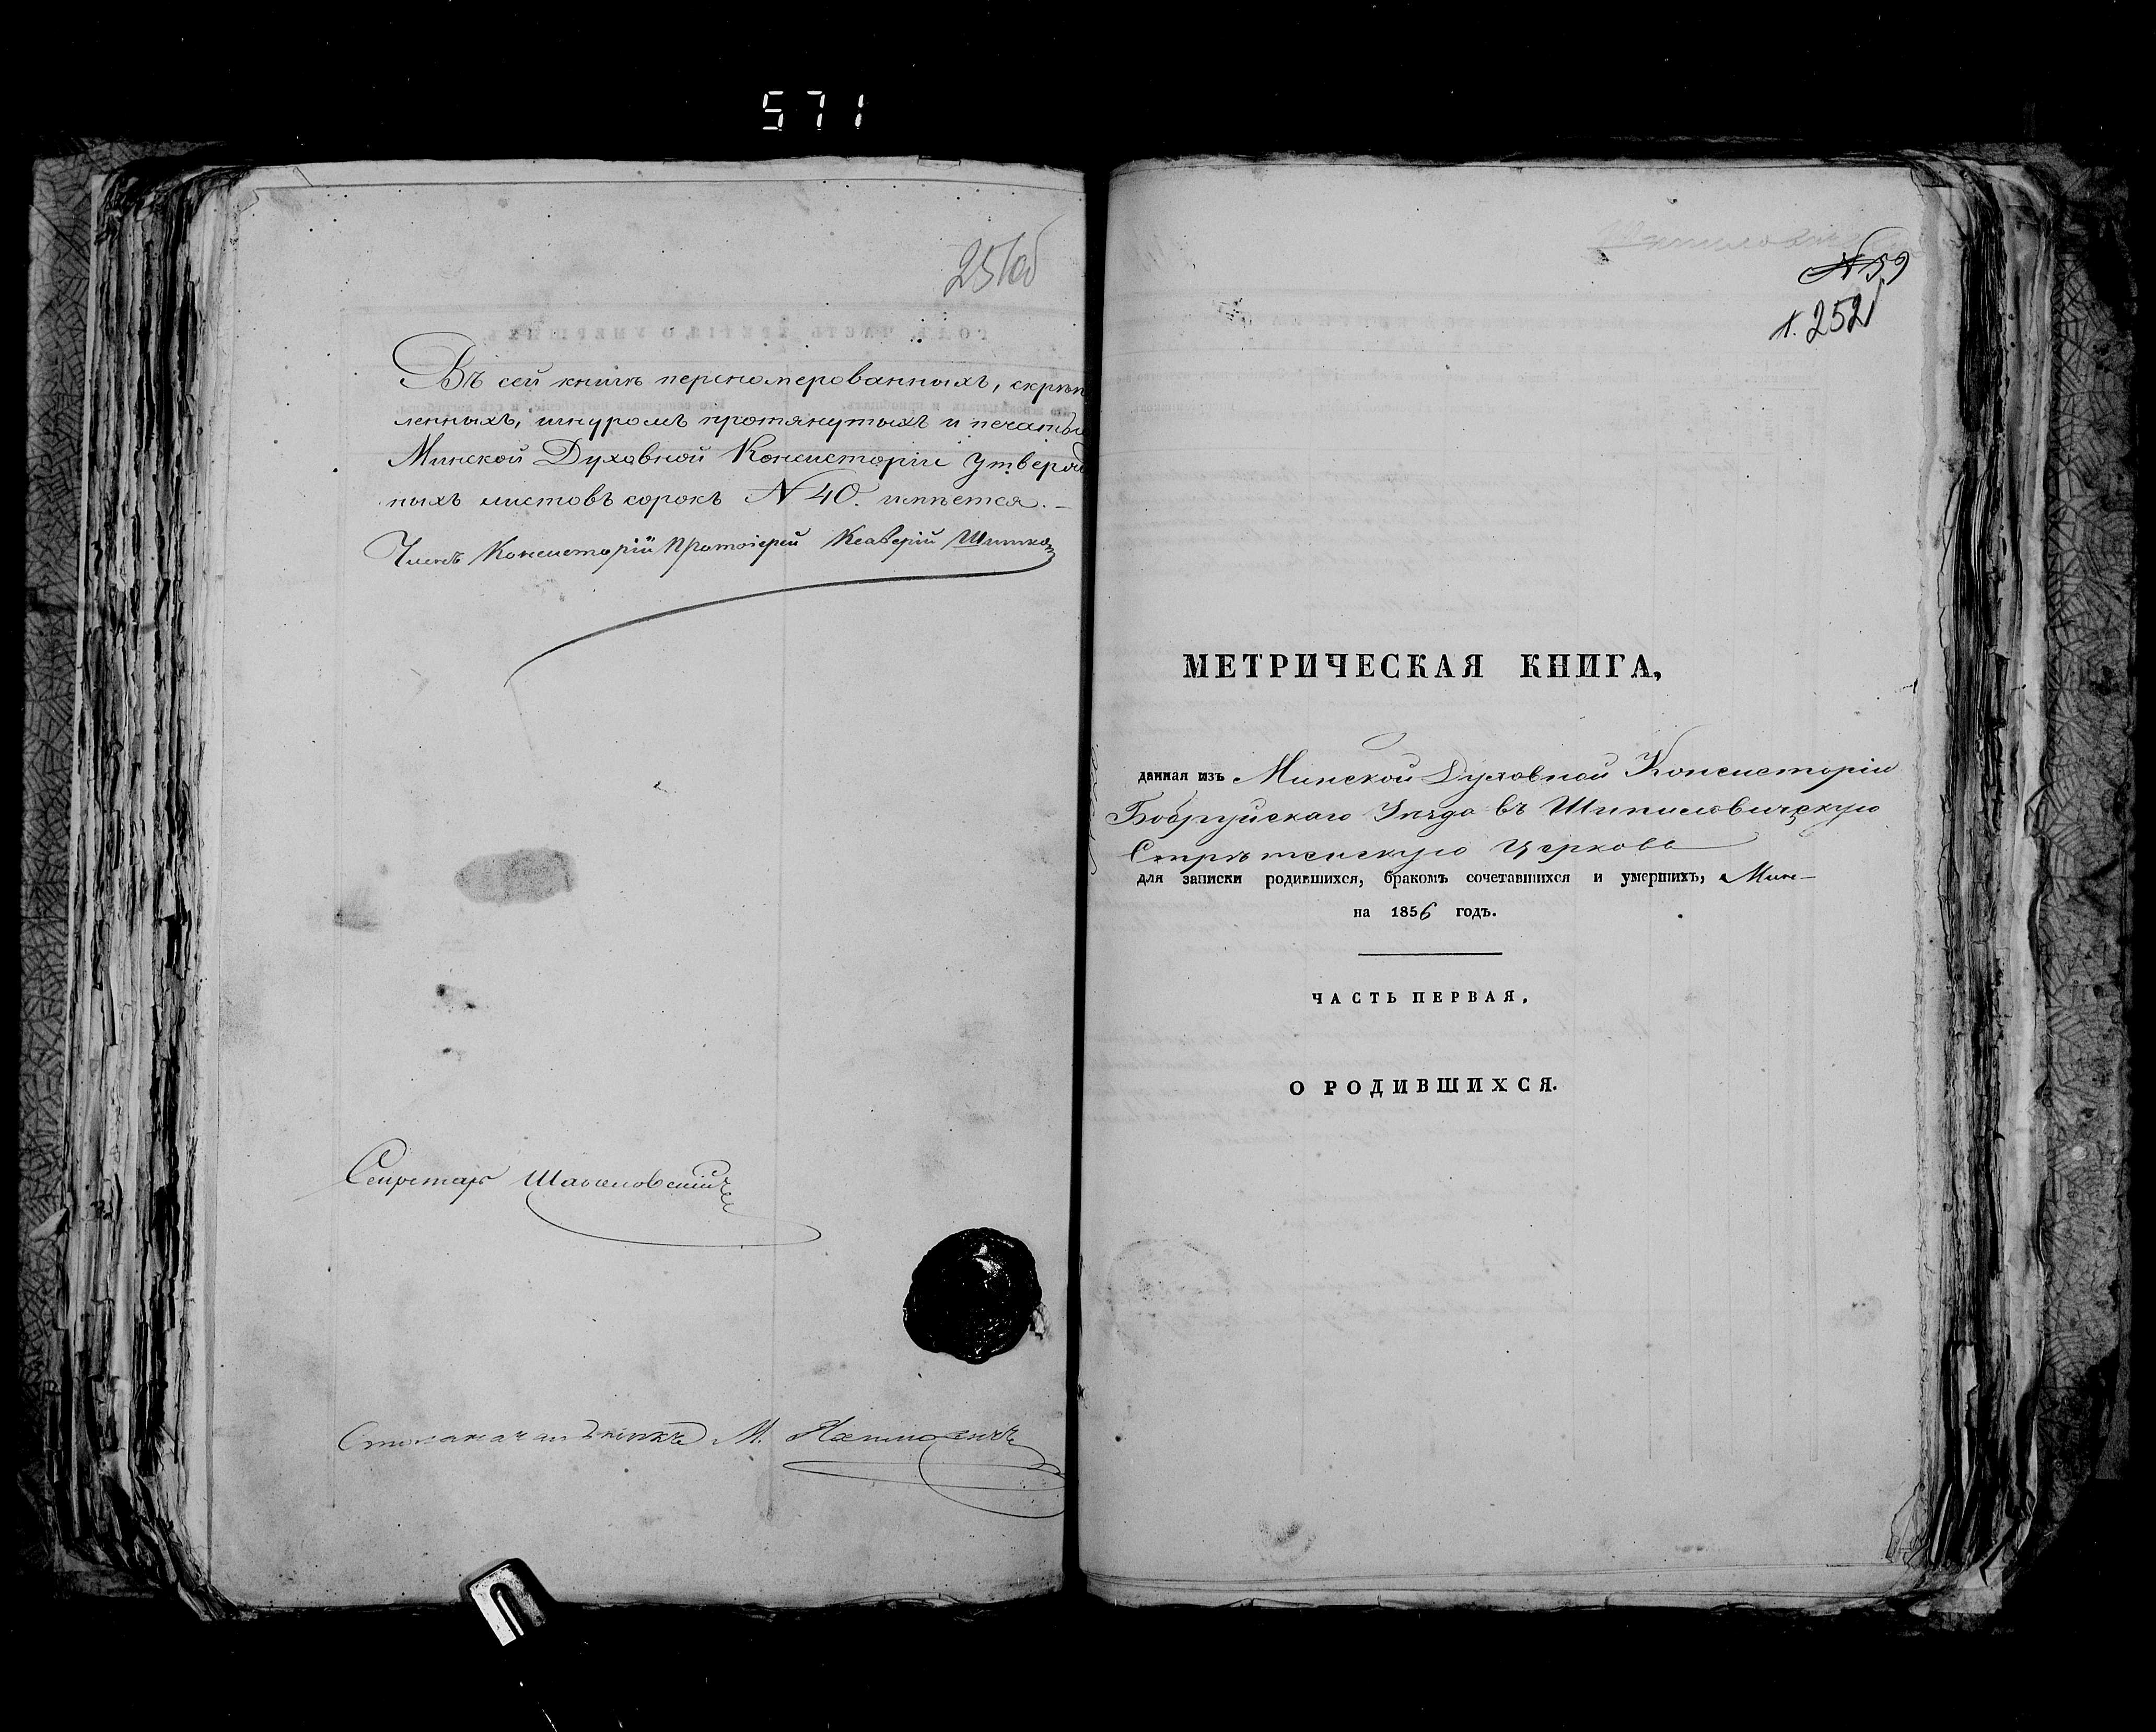 571
251об
Въ сей книгѣ переномерованныхъ, скрѣп
ленныхъ, шнуромъ протянутыхъ и печатью
Минской Духовной Консисторіи утвержд
ныхъ листовъ сорокъ N 40. имѣется.–
Членъ Консисторіи Протоіерей Ксаверій
Секретарь
Столоначальникъ М.
N 59
л. 252
МЕТРИЧЕСКАЯ КНИГА,
данная изъ Минской Духовной Консисторіи
Бобруйскаго Уѣзда въ Шипиловичскую
Стрѣтенскую Церковь
для записки родившихся, бракомъ сочетавшихся и умершихъ,
на 1856 годъ.
ЧАСТЬ ПЕРВАЯ,
О РОДИВШИХСЯ.